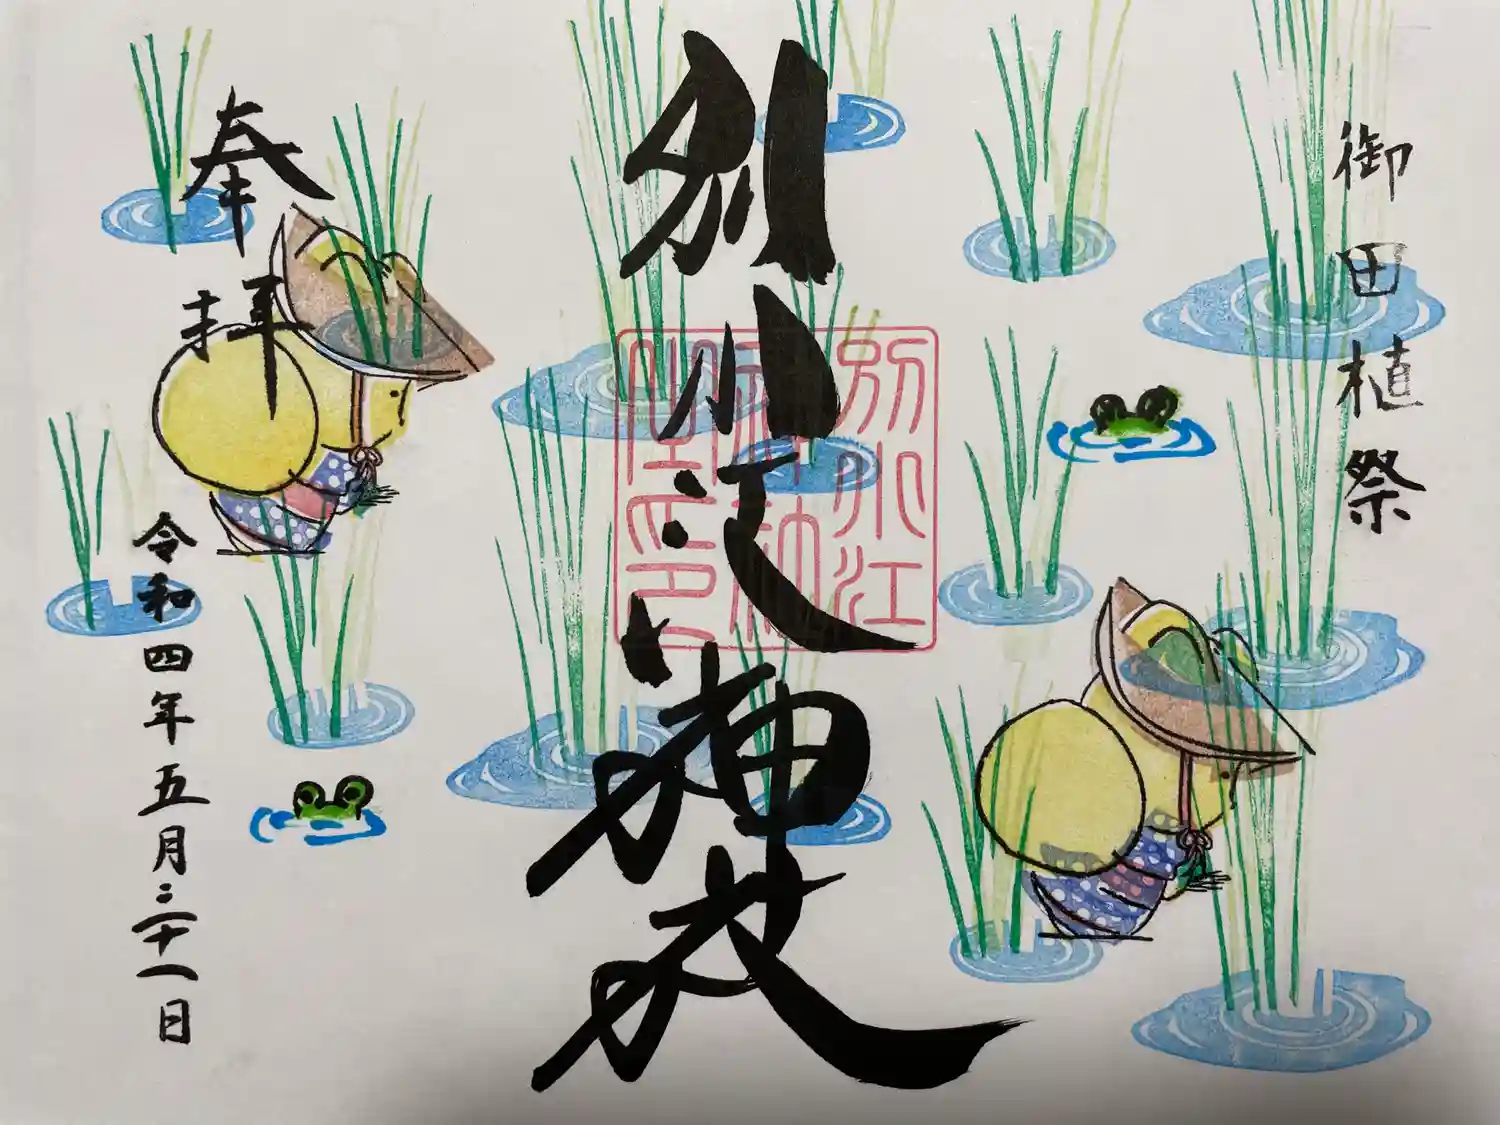 御田植祭
別小江神社
別小江
奉拝
令和四年五月三十一日